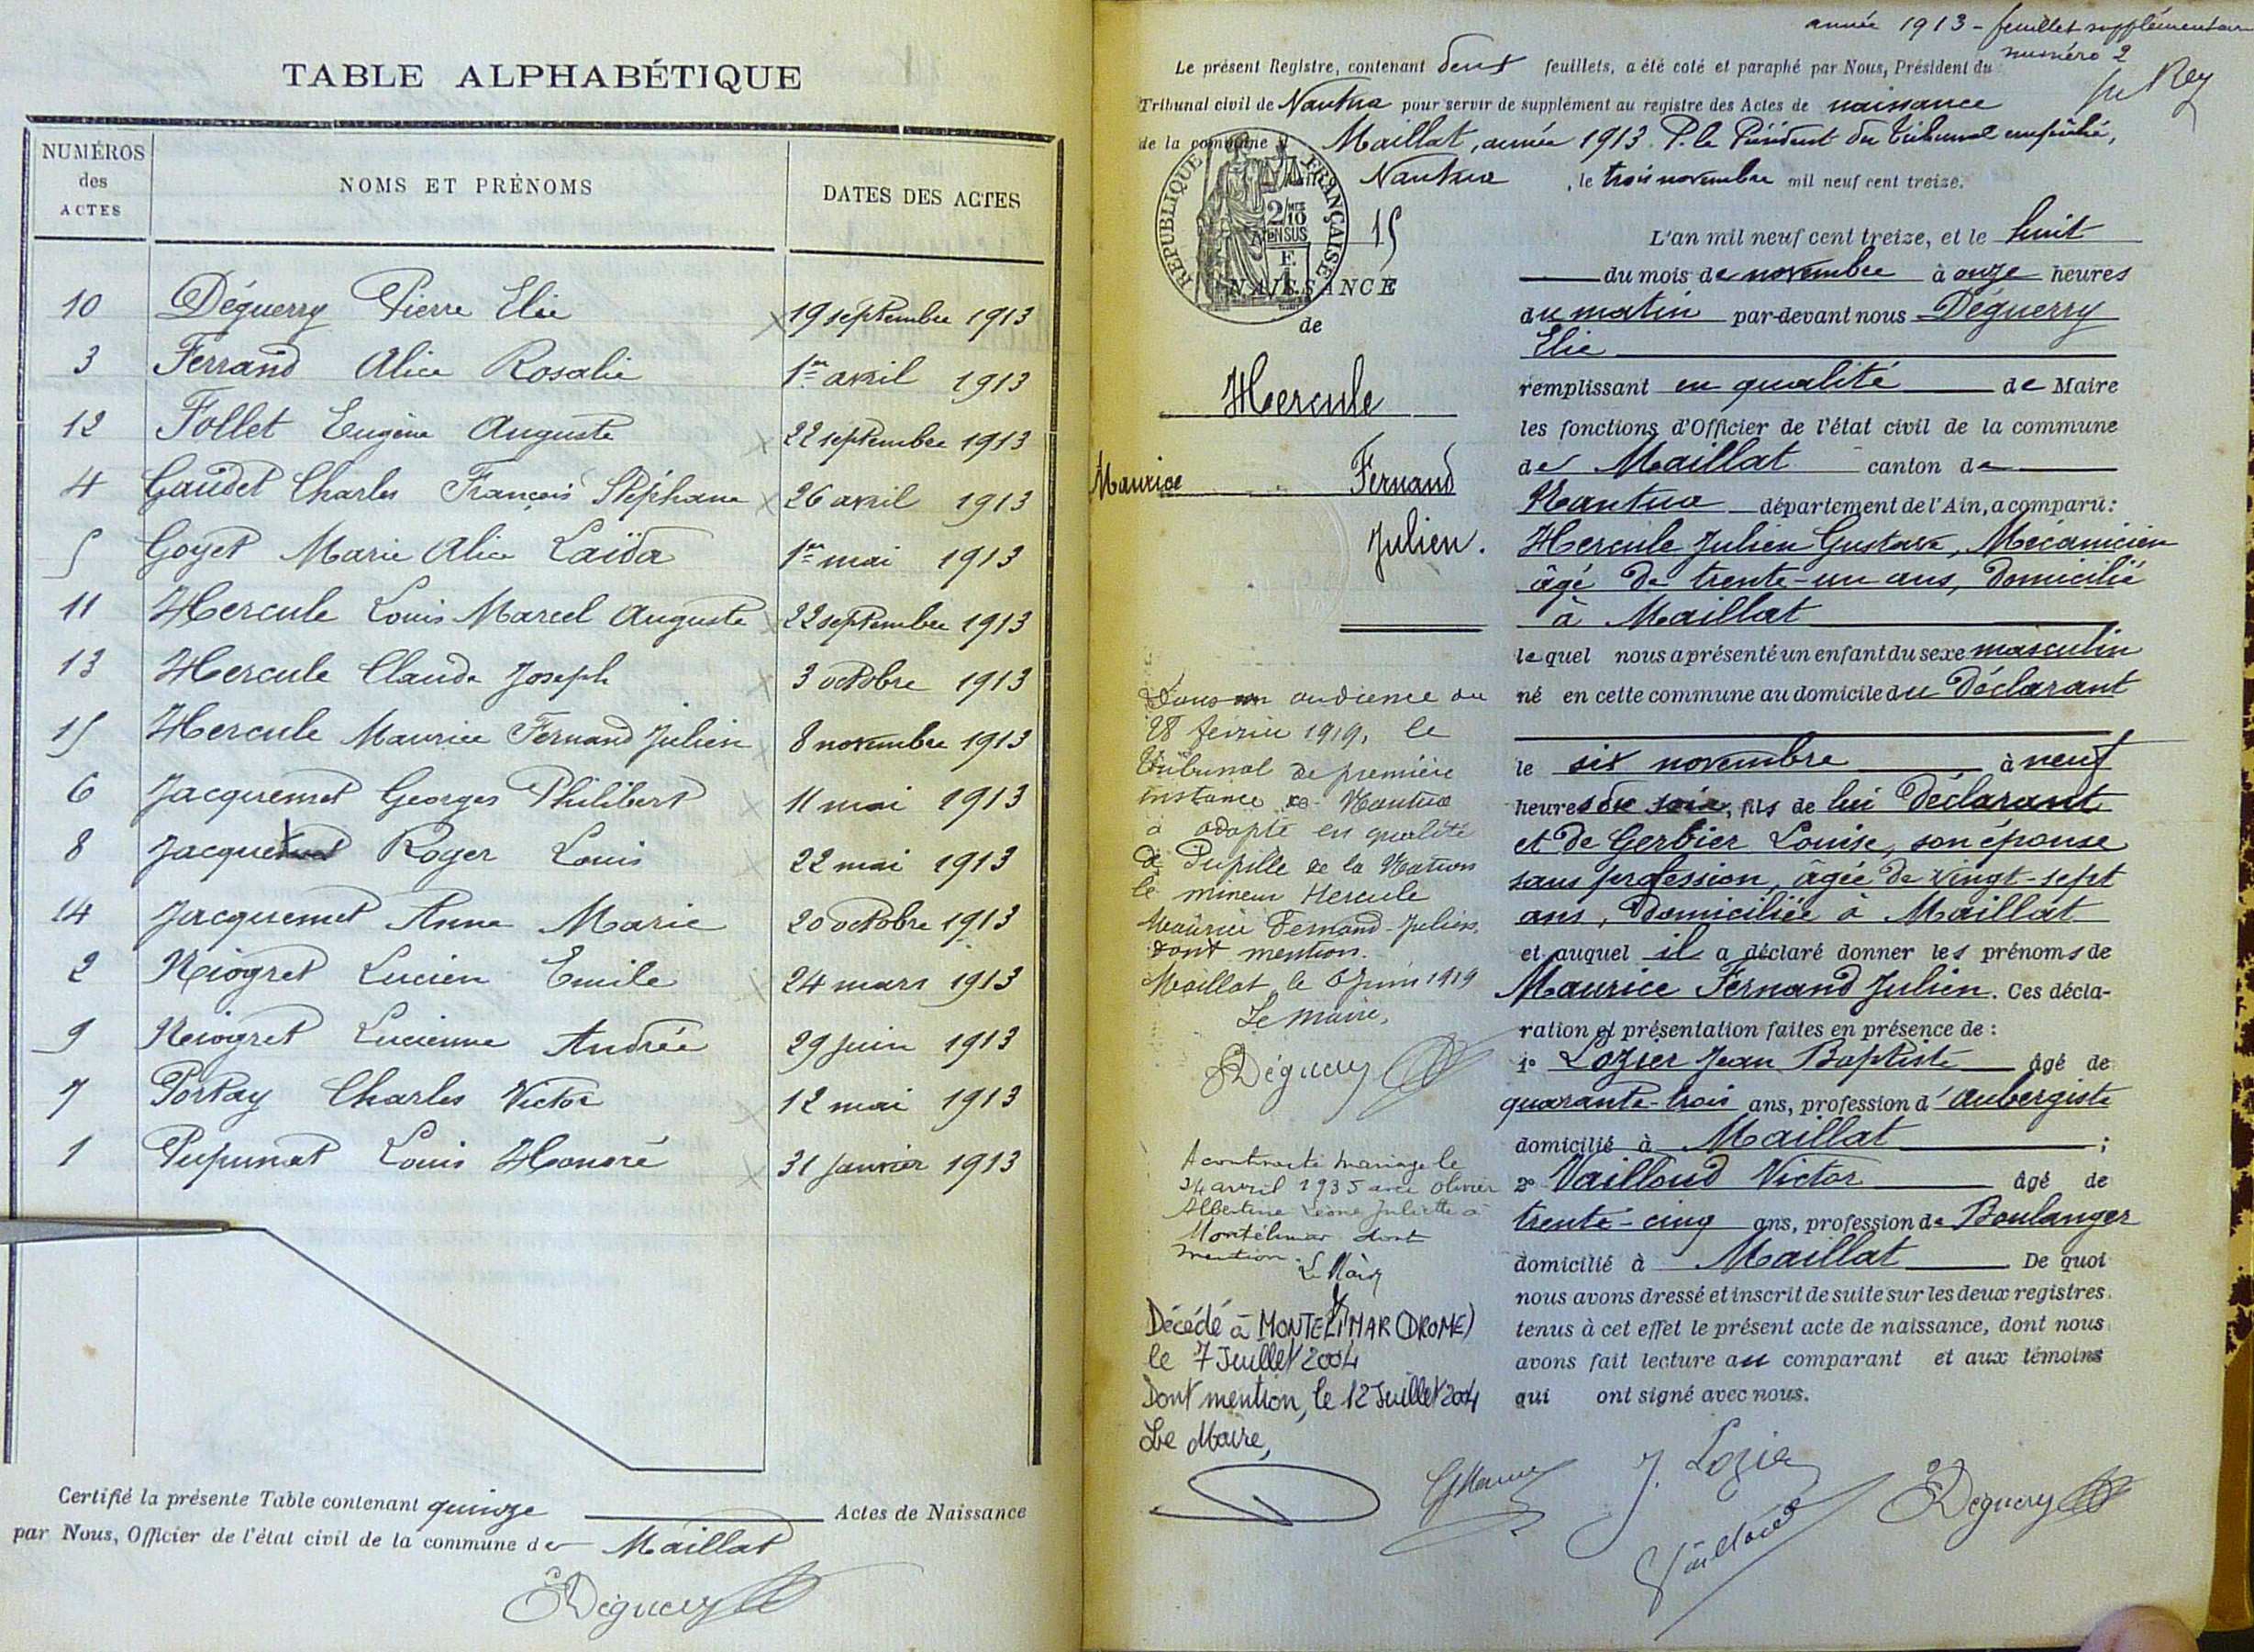 TABLE ALPHABÉTIQUE
NUMÉROS des ACTES NOMS ET PRÉNOMS DATES DES ACTES
10 Déguerry Pierre Elie 19 septembre 1913
3 Ferrand Alice Rosalie 1er avril 1913
12 Follet Eugène Auguste 22 septembre 1913
4 Gaudet Charles François Stéphane 26 avril 1913
5 Goyet Marie Alice Laïda 1er mai 1913
11 Hercule Louis Marcel Auguste 22 septembre 1913
13 Hercule Claude Joseph 3 octobre 1913
15 Hercule Maurice Fernand Julien 8 novembre 1913
6 Jacquemet Georges Philibert 11 mai 1913
8 Roger Louis 22 mai 1913
14 Jacquemet Anne Marie 20 octobre 1913
2 Niogret Lucien Emile 24 mars 1913
9 Niogret Lucienne Andrée 29 juin 1913
7 Portay Charles Victor 12 mai 1913
1 Pupunat Louis Honoré 31 janvier 1913
Certifié la présente Table contenant quinze Actes de Naissance
par Nous, Officier de l'état civil de la commune de Maillat
EDéguerry
année 1913 - feuillet supplémentaire
numéro 2
Rey
Le présent Registre, contenant deux feuillets, a été coté et paraphé par Nous, Président du
Tribunal civil de Nantua pour servir de supplément au registre des Actes de naissance
de la commune Maillat, année 1913. P. le Président du Tribunal empêché,
Nantua, le trois novembre mil neuf cent treize.
REPUBLIQUE FRANÇAISE
2/10 MES
EN SUS
F.
1
15
NAISSANCE
de
Hercule
Maurice Fernand
Julien.
L'an mil neuf cent treize, et le huit
du mois de novembre à onze heures
du matin par-devant nous Déguerry
Elie
remplissant en qualité de Maire
les fonctions d'Officier de l'état civil de la commune
de Maillat canton de
Nantua département de l'Ain, a comparu:
Hercule Julien Gustave, Mécanicien
âgé de trente-un ans, domicilié
à Maillat
lequel nous a présenté un enfant du sexe masculin
né en cette commune au domicile du déclarant
le six novembre à neuf
heures du soir, fils de lui déclarant
et de Gerbier Louise, son épouse
sans profession, âgée de vingt-sept
ans, domiciliée à Maillat
et auquel il a déclaré donner les prénoms de
Maurice Fernand Julien. Ces décla-
ration et présentation faites en présence de :
1° Lozier Jean Baptiste âgé de
quarante-trois ans, profession d'Aubergiste
domicilié à Maillat ;
2° Vailloud Victor âgé de
trente-cinq ans, profession de Boulanger
domicilié à Maillat De quoi
nous avons dressé et inscrit de suite sur les deux registres
tenus à cet effet le présent acte de naissance, dont nous
avons fait lecture au comparant et aux témoins
qui ont signé avec nous.
Dans audience du
28 février 1919, le
Tribunal de première
instance de Nantua
a adopté en qualité
de Pupille de la Nation
le mineur Hercule
Maurice Fernand-Julien,
dont mention.
Maillat, le 6 juin 1919
Le maire,
EDéguerry
A contracté mariage le
24 avril 1935 avec Olivier
Albertine Léone Juliette à
Montélimar dont
mention.
Le Maire
Décédé à MONTELIMAR (DROME)
le 7 Juillet 2004
Dont mention, le 12 Juillet 2004
Le Maire,
J. Lozier
Vailloud
EDéguerry